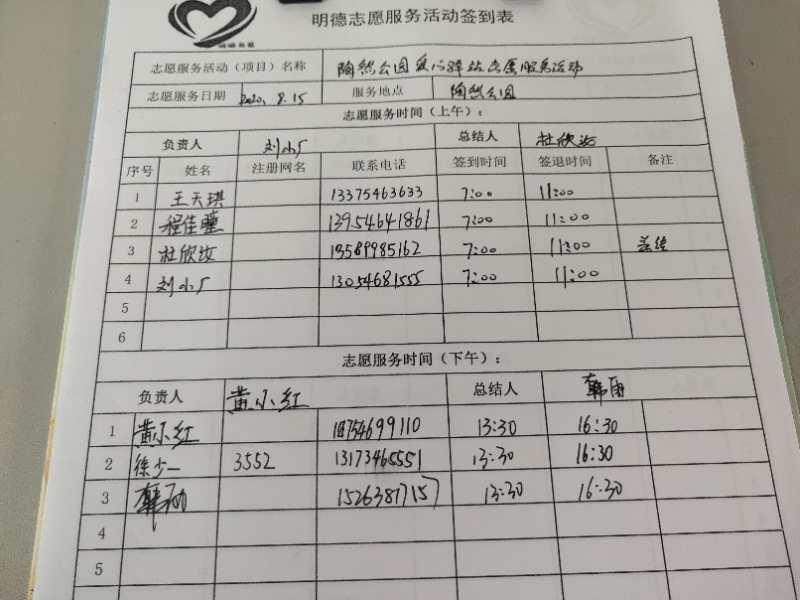 明德志愿服务活动签到表
志愿服务活动（项目）名称 陶然公园爱心驿站志愿服务活动
志愿服务日期 2020.8.15 服务地点 陶然公园
志愿服务时间（上午）：
负责人 刘小厂 总结人 杜欣汝
序号 姓名 注册网名 联系电话 签到时间 签退时间 备注
1 王天琪 13375463633 7:00 11:00
2 程佳 13954641861 7:00 11:00
3 杜欣汝 13589985162 7:00 11:00 总结
4 刘小厂 13054681555 7:00 11:00
5
6
志愿服务时间（下午）：
负责人 黄小红 总结人 韩
1 黄小红 18754699110 13:30 16:30
2 徐少一 3552 13173465551 13:30 16:30
3 15263817157 13:30 16:30
4
5